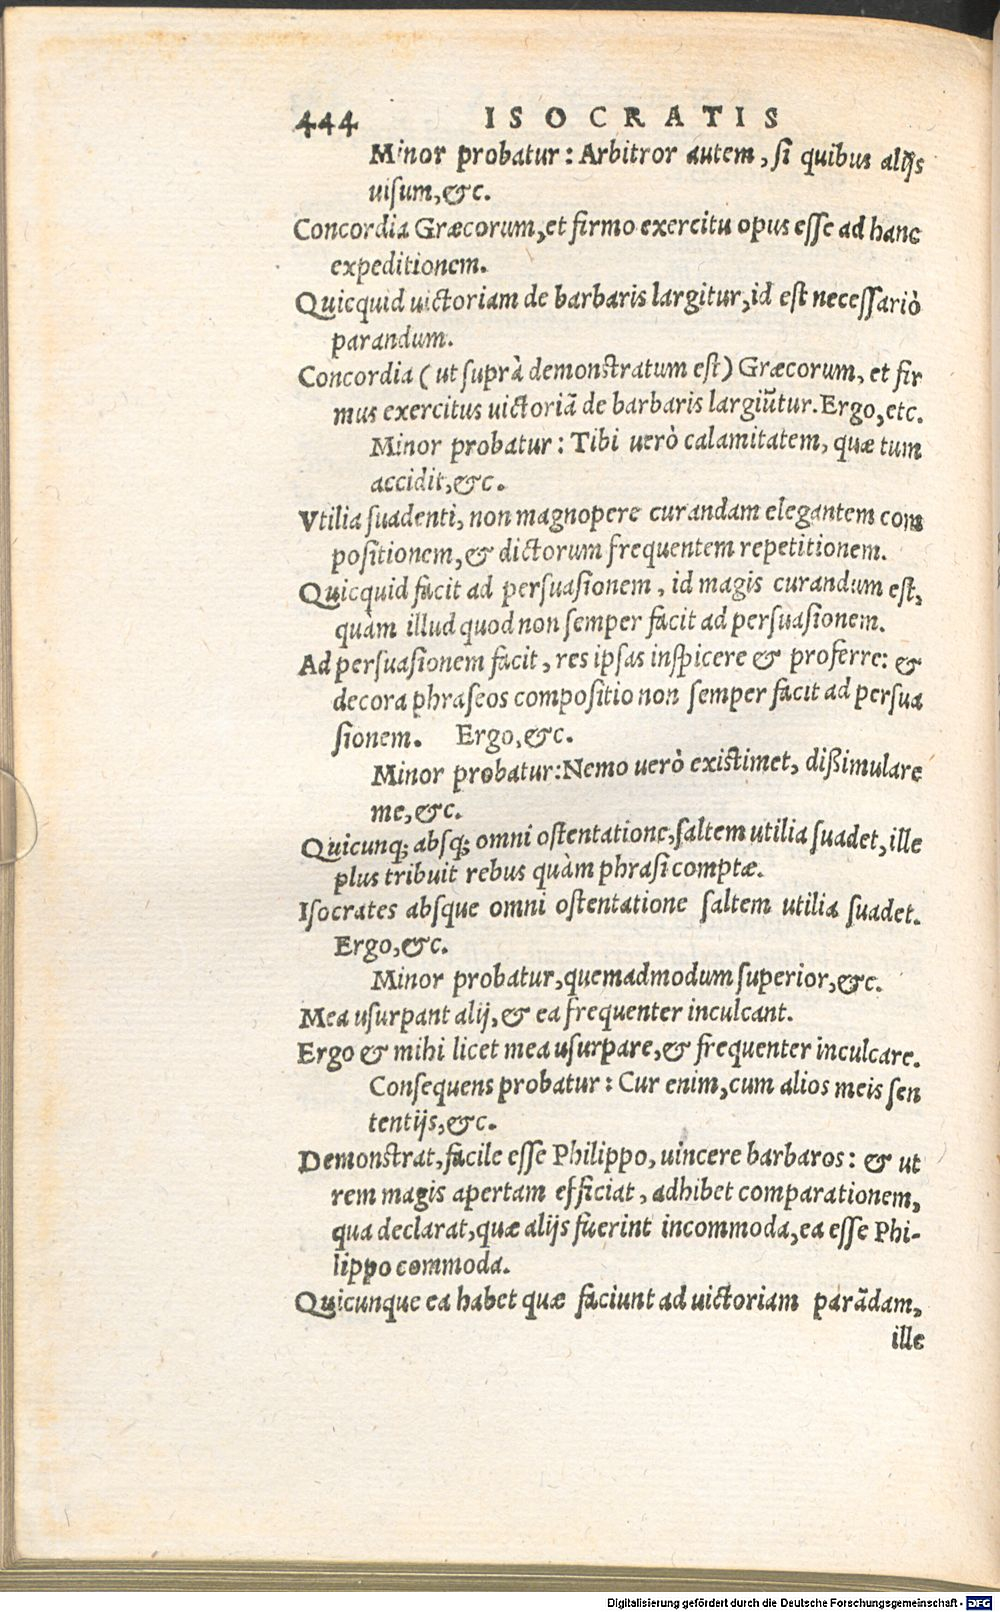 444 ISOCRATIS
Minor probatur: Arbitror autem, si quibus alijs
uisum, &c.
Concordia Græcorum, et firmo exercitu opus esse ad hanc
expeditionem.
Quicquid uictoriam de barbaris largitur, id est necessariò
parandum.
Concordia (ut suprà demonstratum est) Græcorum, et fir
mus exercitus uictoriã de barbaris largiũtur. Ergo, etc.
Minor probatur: Tibi uerò calamitatem, quæ tum
accidit, &c.
Vtilia suadenti, non magnopere curandam elegantem com
positionem, & dictorum frequentem repetitionem.
Quicquid facit ad persuasionem, id magis curandum est,
quàm illud quod non semper facit ad persuasionem.
Ad persuasionem facit, res ipsas inspicere & proferre: &
decora phraseos compositio non semper facit ad persua
sionem. Ergo, &c.
Minor probatur: Nemo uerò existimet, dißimulare
me, &c.
Quicunq; absq; omni ostentatione, saltem utilia suadet, ille
plus tribuit rebus quàm phrasi comptæ.
Isocrates absque omni ostentatione saltem utilia suadet.
Ergo, &c.
Minor probatur, quemadmodum superior, &c.
Mea usurpant alij, & ea frequenter inculcant.
Ergo & mihi licet mea usurpare, & frequenter inculcare.
Consequens probatur: Cur enim, cum alios meis sen
tentijs, &c.
Demonstrat, facile esse Philippo, uincere barbaros: & ut
rem magis apertam efficiat, adhibet comparationem,
qua declarat, quæ alijs fuerint incommoda, ea esse Phi-
lippo commoda.
Quicunque ea habet quæ faciunt ad uictoriam parãdam,
ille
Digitalisierung gefördert durch die Deutsche Forschungsgemeinschaft - DFG